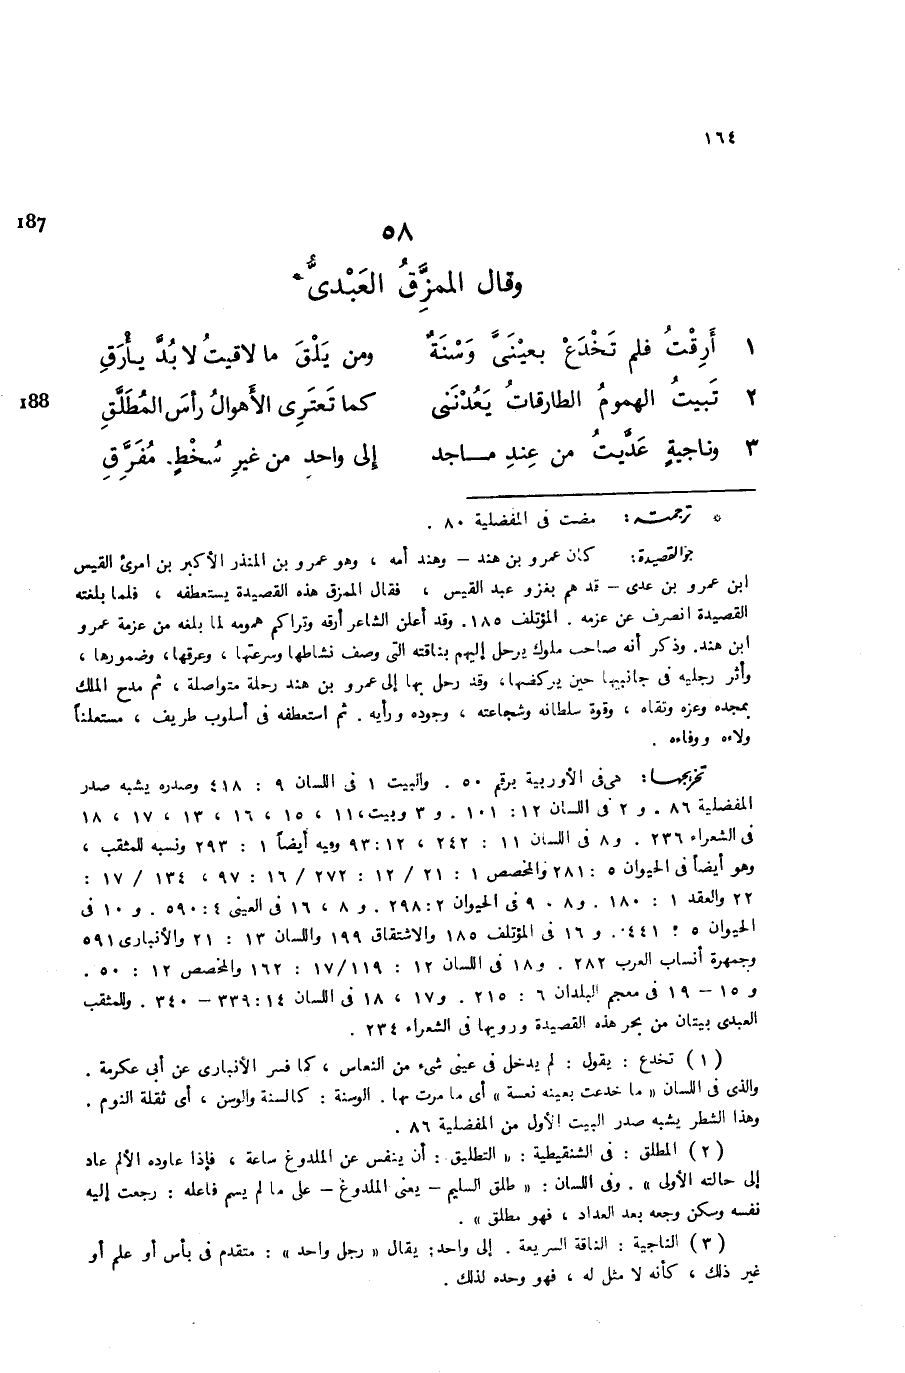 ١٦٤
187
٥٨
وقال الممزَّقُ العَبْدىُّ *
١ أَرِقْتُ فلم تَخْدَعْ بعيْنَىَّ وَسْنَةٌ ومن يَلْقَ ما لاقيتُ لا بُدَّ يأْرَقِ
188
٢ تَبيتُ الهمومُ الطارقاتُ يَعُدْنَنى كما تَعتَرِى الأَهوالُ رأسَ المُطَلَّقِ
٣ وناجيةٍ عَدَّيتُ من عِندِ ماجد إلى واحدِ من غيرِ سُخْطٍ مُفَرَّقِ
* ترجمته: مضت فى المفضلية ٨٠ .
جو القصيدة: كان عمرو بن هند – وهند أمه ، وهو عمرو بن المنذر الأكبر بن امرئ القيس
ابن عمرو بن عدى – قد هم بغزو عبد القيس ، فقال الممزق هذه القصيدة يستعطفه ، فلما بلغته
القصيدة انصرف عن عزمه . المؤتلف ١٨٥. وقد أعلن الشاعر أرقه وتراكم همومه لما بلغه من عزمة عمرو
ابن هند. وذكر أنه صاحب ملوك يرحل إليهم بناقته التى وصف نشاطها وسرعتها ، وعرقها، وضمورها ،
وأثر رجليه فى جانبيها حين يركضها، وقد رحل بها إلى عمرو بن هند رحلة متواصلة ، ثم مدح الملك
بمجده وعزه وتقاه ، وقوة سلطانه وشجاعته ، وجوده ورأيه . ثم استعطفه فى أسلوب طريف ، مستعلناً
ولاءه ووفاءه .
تخريجها: هى فى الأوربية برقم ٥٠ . والبيت ١ فى اللسان ٩ : ٤١٨ وصدره يشبه صدر
المفضلية ٨٦ . و ٢ فى اللسان ١٢: ١٠١ . و ٣ وبيت، ١١ ، ١٥ ، ١٦ ، ١٣ ، ١٧ ، ١٨
فى الشعراء ٢٣٦ . و٨ فى اللسان ١١ : ٢٤٢ ، ٩٣:١٢ وفيه أيضاً ١ : ٢٩٣ ونسبه للمثقب ،
وهو أيضاً فى الحيوان ٥ : ٢٨١ والمخصص ١ : ٢١ / ١٢ : ٢٧٢ / ١٦ : ٩٧ ، ١٣٤ / ١٧ :
٢٢ والعقد ١ : ١٨٠ . و٨ ، ٩ فى الحيوان ٢٩٨:٢ . و ٨ ، ١٦ فى العينى ٥٩٠:٤ . و ١٠ فى
الحيوان ٥ : ٤٤١. و ١٦ فى المؤتلف ١٨٥ والاشتقاق ١٩٩ واللسان ١٣ : ٢١ والأنبارى ٥٩١
وجمهرة أنساب العرب ٢٨٢ . و١٨ فى اللسان ١٢ : ١٧/١١٩ : ١٦٢ والمخصص ١٢ : ٥٠ .
و ١٥ – ١٩ فى معجم البلدان ٦ : ٢١٥ . و١٧ ، ١٨ فى اللسان ٣٣٩:١٤ – ٣٤٠ . وللمثقب
العبدى بيتان من بحر هذه القصيدة ورويها فى الشعراء ٢٣٤ .
(١) تخدع : يقول : لم يدخل فى عينى شىء من النعاس ، كما فسر الأنبارى عن أبى عكرمة .
والذى فى اللسان « ما خدعت بعينه نعسة » أى ما مرت بها . الوسنة : كالسنة والوسن ، أى ثقلة النوم .
وهذا الشطر يشبه صدر البيت الأول من المفضلية ٨٦ .
(٢) المطلق : فى الشنقيطية : « التطليق : أن ينفس عن الملدوغ ساعة ، فإذا عاوده الألم عاد
إلى حالته الأولى » . وفى اللسان : « طلق السليم – يعنى الملدوغ – على ما لم يسم فاعله : رجعت إليه
نفسه وسكن وجعه بعد العداد ، فهو مطلق » .
(٣) الناجية : الناقة السريعة . إلى واحد: يقال « رجل واحد » : متقدم فى بأس أو علم أو
غير ذلك ، كأنه لا مثل له ، فهو وحده لذلك .